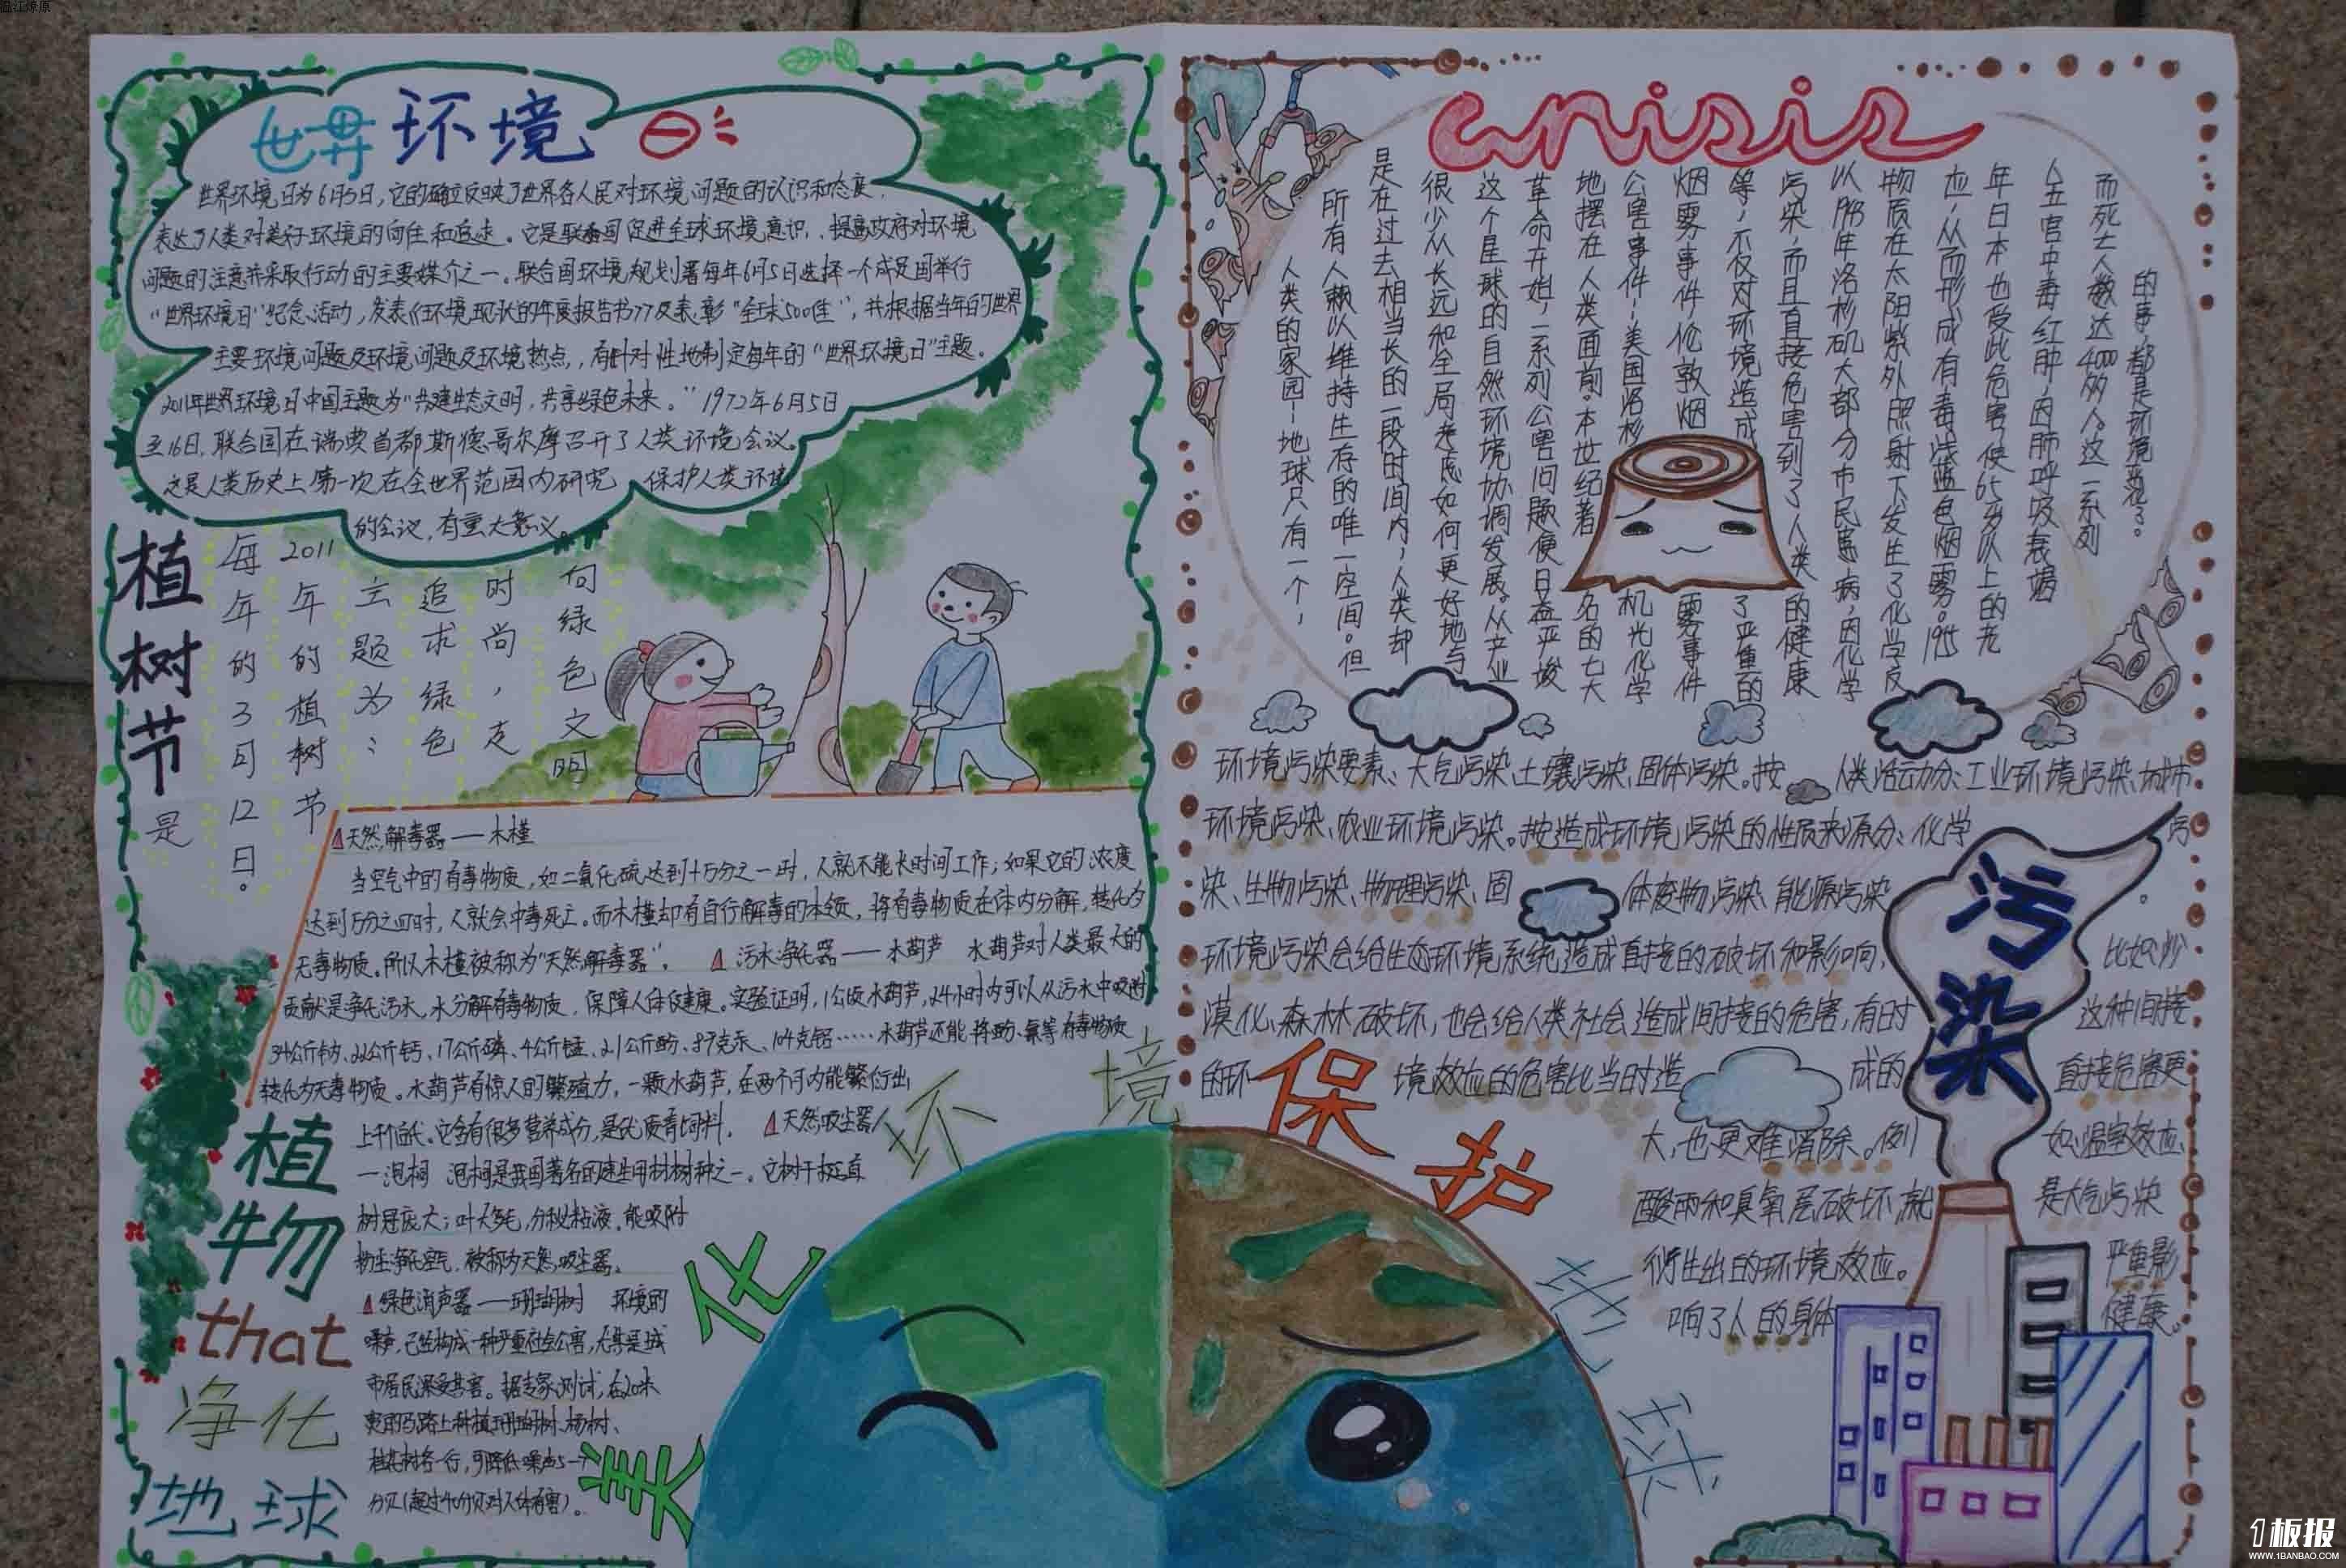 世界环境日
世界环境日为6月5日,它的确立反映了世界各人民对环境问题的认识和态度,
表达了人类对美好环境的向往和追求。它是联合国促进全球环境意识、提高政府对环境
问题的注意并采取行动的主要媒介之一。联合国环境规划署每年6月5日选择一个成员国举行
“世界环境日”纪念活动,发表《环境现状的年度报告书》及表彰“全球500佳”,并根据当年的世界
主要环境问题及环境问题及环境热点,有针对性地制定每年的“世界环境日”主题。
2011年世界环境日中国主题为“共建生态文明,共享绿色未来。”1972年6月5日
至16日,联合国在瑞典首都斯德哥尔摩召开了人类环境会议。
这是人类历史上第一次在全世界范围内研究保护人类环境
的会议,有重大意义。
植树节是
每年的3月12日。
2011年的植树节
主题为:
追求绿色
时尚,走
向绿色文明
天然解毒器——木槿
当空气中的有毒物质,如二氧化硫达到十万分之一时,人就不能长时间工作;如果它的浓度
达到万分之四时,人就会中毒死亡。而木槿却有自行解毒的本领,将有毒物质在体内分解,转化为
无毒物质。所以木槿被称为“天然解毒器”。 污水净化器——水葫芦 水葫芦对人类最大的
贡献是净化污水,水分解有毒物质,保障人体健康。实验证明,1公顷水葫芦,24小时内可以从污水中吸附
34公斤钠、22公斤钙、17公斤磷、4公斤锰、2.1公斤酚、89克汞、104克铝……水葫芦还能将酚、氰等有毒物质
转化为无毒物质。水葫芦有惊人的繁殖力,一颗水葫芦,在两个月内能繁衍出
上千后代。它含有很多营养成分,是优质青饲料。 天然吸尘器
—泡桐 泡桐是我国著名的速生用材树种之一。它树干挺直
树冠庞大;叶大多毛,分秘粘液,能吸附
粉尘净化空气,被称为天然吸尘器。
绿色消声器——珊瑚树 环境的
噪声,已经构成一种严重社会公害,尤其是城
市居民深受其害。据专家测试,在20米
宽的马路上种植珊瑚树、杨树、
桂花树各一行,可降低噪声5—7
分贝(超过40分贝对人体有害)。
植物
that
净化
地球
美化环境保护地球
crisis
人类的家园—地球只有一个,
所有人赖以维持生存的唯一空间。但
是在过去相当长的一段时间内,人类却
很少从长远和全局考虑如何更好地与
这个星球的自然环境协调发展。从产业
革命开始,一系列公害问题便日益严峻
地摆在人类面前。本世纪著名的七大
公害事件—美国洛杉机光化学
烟雾事件伦敦烟雾事件
等,不仅对环境造成了严重的
污染,而且直接危害到了人类的健康
以1943年洛杉矶大部分市民患病,因化学
物质在太阳紫外照射下发生了化学反
应,从而形成有毒浅蓝色烟雾。1955
年日本也受此危害使65岁以上的老
人五官中毒红肿,因肺呼吸衰竭
而死亡人数达4000多人。这一系列
的事,都是环境惹了。
环境污染要素、大气污染、土壤污染、固体污染。按人类活动分:工业环境污染、城市
环境污染、农业环境污染。按造成环境污染的性质来源分:化学污
染、生物污染、物理污染、固体废物污染、能源污染。
环境污染会给生态环境系统造成直接的破坏和影响,比如沙
漠化、森林破坏,也会给人类社会造成间接的危害,有时这种间接
的环境效应的危害比当时造成的直接危害更
大,也更难消除。例如温室效应、
酸雨和臭氧层破坏就是大气污染
衍生出的环境效应。严重影
响了人的身体健康。
污染
1板报
WWW.1BANBAO.COM